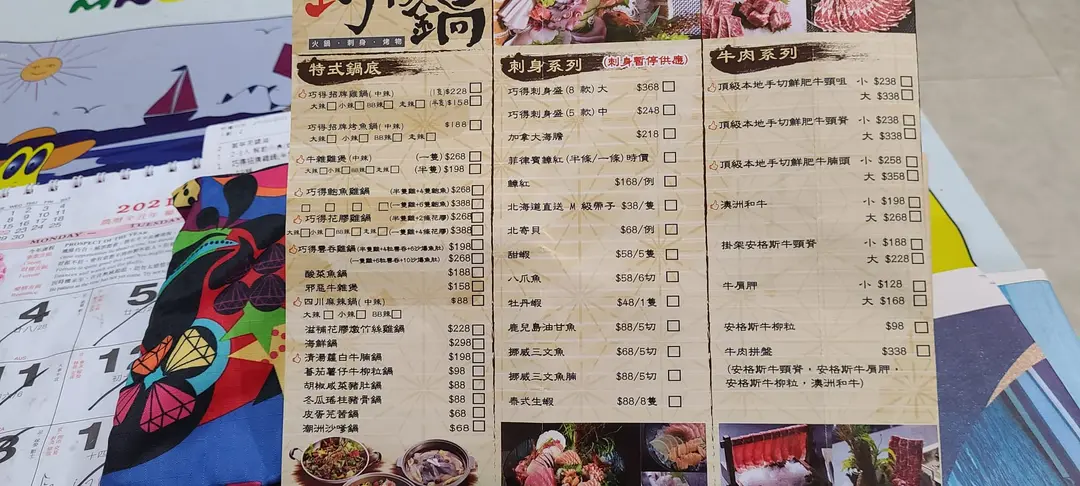 鍋
火鍋．刺身．烤物
特式鍋底
巧得招牌雞鍋(中辣) (1隻)$228
大辣 小辣 BB辣 走辣 (半隻)$158
巧得招牌烤魚鍋(中辣) $188
大辣 小辣 BB辣 走辣
牛雜雞煲(中辣) (一隻)$268
大辣 小辣 BB辣 走辣 (半隻)$198
巧得鮑魚雞鍋 (半隻雞+4隻鮑魚)$268
$388
巧得花膠雞鍋 (半隻雞+2條花膠)$268
大辣 小辣 BB辣 走辣 (一隻雞+4條花膠)$388
巧得雲吞雞鍋 $198
$268
酸菜魚鍋 $188
邪惡牛雜煲 $158
四川麻辣鍋(中辣) $88
大辣 小辣 BB辣
滋補花膠燉竹絲雞鍋 $228
海鮮鍋 $298
清湯蘿白牛腩鍋 $198
蕃茄薯仔牛柳粒鍋 $98
胡椒咸菜豬肚鍋 $88
冬瓜瑤柱豬骨鍋 $88
皮蛋芫茜鍋 $68
潮洲沙嗲鍋 $68
刺身系列 (刺身暫停供應)
巧得刺身盛(8款)大 $368
巧得刺身盛(5款)中 $248
加拿大海膽 $218
菲律賓鱆紅(半條/一條)時價
鱆紅 $168/例
北海道直送 M級帶子 $38/隻
北寄貝 $68/例
甜蝦 $58/5隻
八爪魚 $58/6切
牡丹蝦 $48/1隻
鹿兒島油甘魚 $88/5切
挪威三文魚 $68/5切
挪威三文魚腩 $88/5切
泰式生蝦 $88/8隻
牛肉系列
頂級本地手切鮮肥牛頸咀 小 $238
大 $338
頂級本地手切鮮肥牛頸脊 小 $238
大 $338
頂級本地手切鮮肥牛腩頭 小 $258
大 $358
澳洲和牛 小 $198
大 $268
掛架安格斯牛頸脊 小 $188
大 $228
牛肩胛 小 $128
大 $168
安格斯牛柳粒 $98
牛肉拼盤 $338
(安格斯牛頸脊，安格斯牛肩胛，
安格斯牛柳粒，澳洲和牛)
2021
MONDAY
TUESDAY
4
5
11